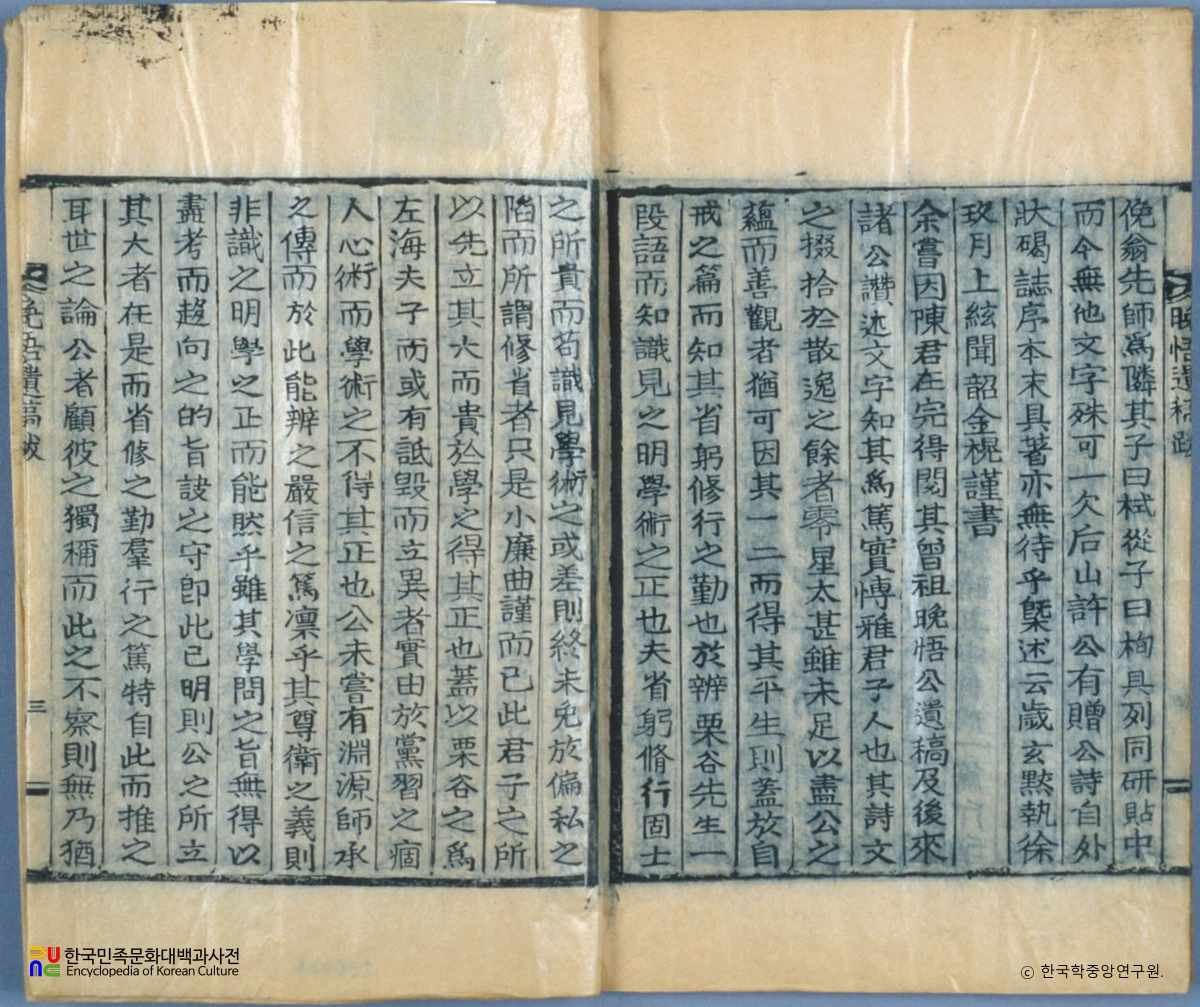 晩悟遺稿跋
俛翁先師爲隣其子曰栻從子曰栒具列同研貼中
而今無他文字殊可一欠后山許公有贈公詩自外
狀碣誌序本末具著亦無待乎槩述云歲玄黓執徐
玖月上絃聞韶金榥謹書
余嘗因陳君在完得閱其曾祖晩悟公遺稿及後來
諸公讚述文字知其爲篤實愽雅君子人也其詩文
之掇拾於散逸之餘者零星太甚雖未足以盡公之
蘊而善觀者猶可因其一二而得其平生則蓋放自
戒之篇而知其省躬修行之勤也於辨栗谷先生一
段語而知識見之明學術之正也夫省躬脩行固士
之所貴而苟識見學術之或差則終未免於偏私之
陷而所謂修省者只是小廉曲謹而已此君子之所
以先立其大而貴於學之得其正也蓋以栗谷之爲
左海夫子而或有詆毁而立異者實由於黨習之痼
人心術而學術之不得其正也公未嘗有淵源師承
之傳而於此能辨之嚴信之篤凛乎其尊衛之義則
非識之明學之正而能然乎雖其學問之旨無得以
盡考而趍向之的旨訣之守卽此已明則公之所立
其大者在是而省修之勤羣行之篤特自此而推之
耳世之論公者顧彼之獨稱而此之不察則無乃猶
晩悟遺稿跋
三
한국민족문화대백과사전
Encyclopedia of Korean Culture
© 한국학중앙연구원.